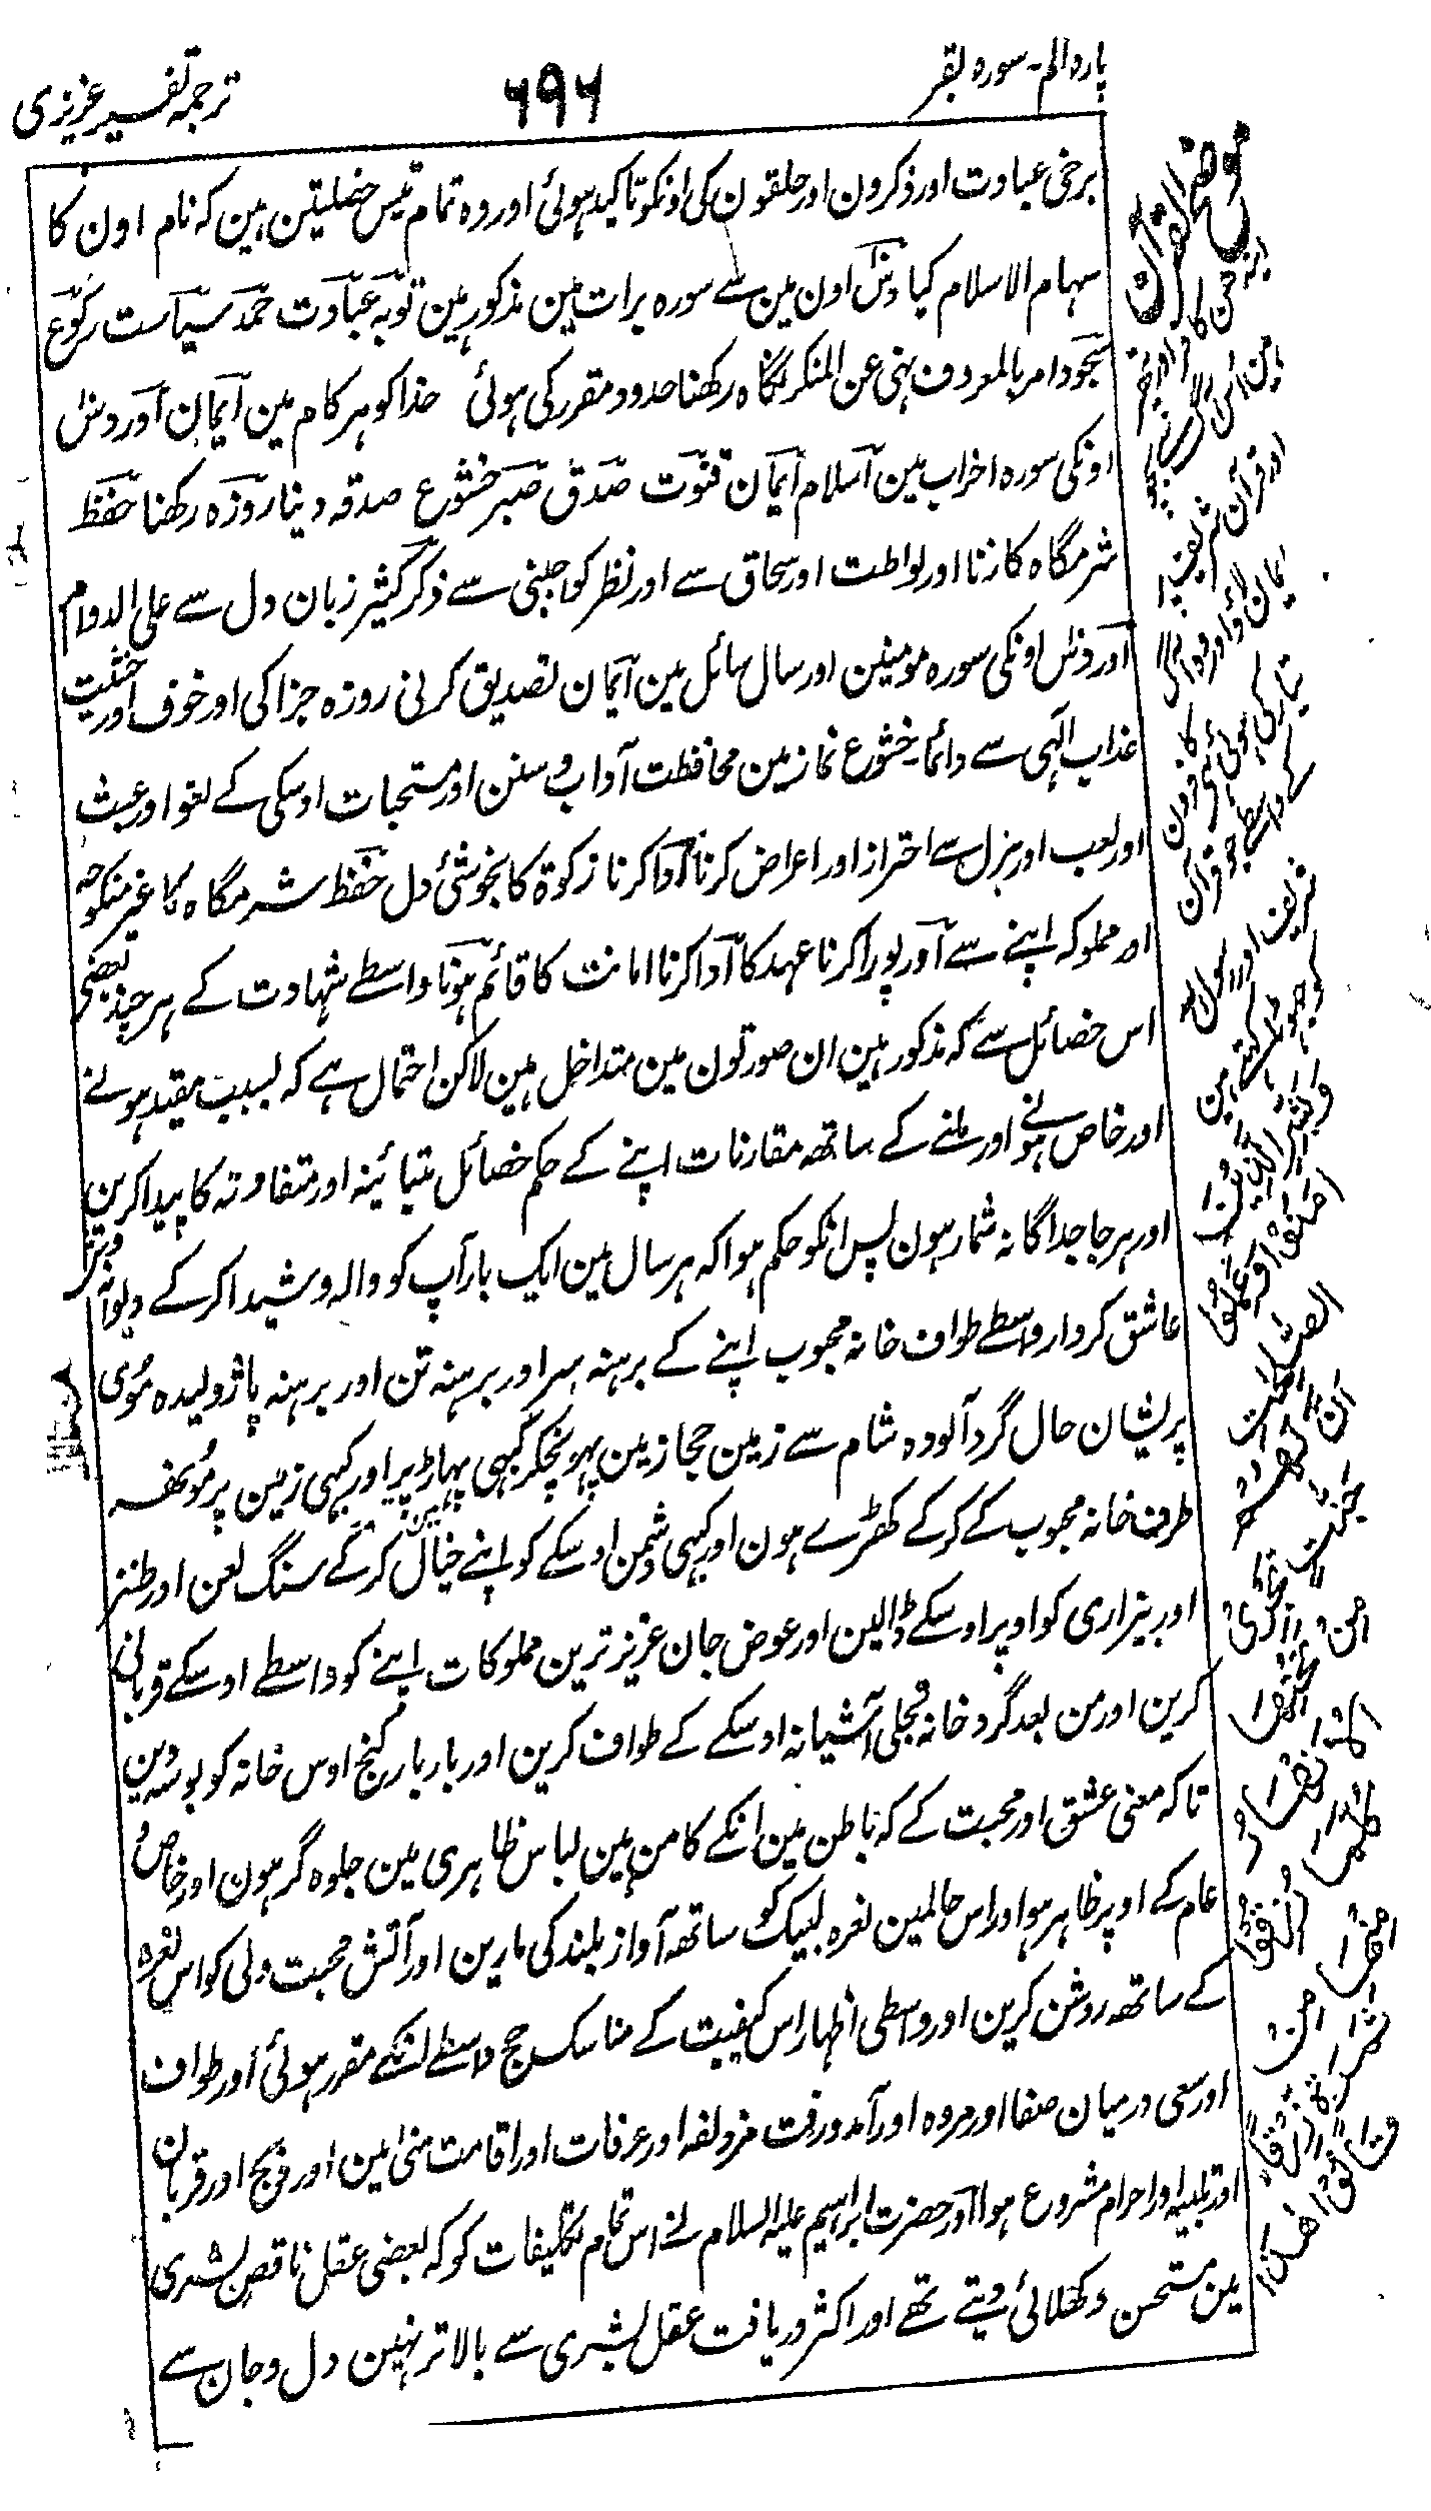 پارہ الم - سورہ بقر
۶۹۶
ترجمہ تفسیر عزیزی
برخی عبادت اور ذکرون اور حلقون کی اونکو تاکید ہوئی اور وہ تمام تیس خصلیتن ہین کہ نام اون کا
سہام الاسلام کیا دس اون مین سے سورہ برات مین مذکور ہین توبہ عبادت حمد سیاست رکوع
سجود امر بالمعروف نہی عن المنکر نگاہ رکھنا حدود مقرر کی ہوئی خدا کو ہر کام مین ایمان اور دس
اونکی سورہ احزاب مین اسلام ایمان قنوت صدق صبر خشوع صدقہ دینا روزہ رکھنا حفظ
شرمگاہ کا زنا اور لواطت اور سحاق سے اور نظر کو اجنبی سے ذکر کثیر زبان دل سے علی الدوام
اور دس اونکی سورہ مومنین اور سال سائل مین ایمان تصدیق کرنی روزہ جزا کی اور خوف اور خشیت
عذاب الہی سے دائما خشوع نماز مین محافظت آداب و سنن اور مستحبات اوسکی کے لغو اور عبث
اور لعب اور ہزل سے احتراز اور اعراض کرنا ادا کرنا زکوۃ کا بخوشئی دل حفظ شرمگاہ کا غیر منکوحہ
اور مملوکہ اپنے سے اور پورا کرنا عہد کا ادا کرنا امانت کا قائم ہونا واسطے شہادت کے ہر چند بعضی
اس خصائل سے کہ مذکور ہین ان صورتون مین متداخل ہین لاکن احتمال ہے کہ بسبب مقید ہونے
اور خاص ہونے اور ملنے کے ساتھہ مقارنات اپنے کے حکم خصائل متبائنہ اور متفاوتہ کا پیدا کرین
اور ہر جا جداگانہ شمار ہون پس انکو حکم ہوا کہ ہر سال مین ایک بار آپ کو والہ و شیدا کر کے دیوانہ وش
عاشق کردار واسطے طواف خانہ محبوب اپنے کے برہنہ سر اور برہنہ تن اور برہنہ پا ژولیدہ موی
پریشان حال گرد آلودہ شام سے زمین حجاز مین پہونچکر کبہی پہاڑ پر اور کبہی زمین پر مونھہ
طرف خانہ محبوب کے کر کے کھڑے ہون اور کبہی دشمن اوسکے کو اپنے خیال مین کر کے سنگ لعن اور طنز
اور بیزاری کو اوپر اوسکے ڈالین اور عوض جان عزیز ترین مملوکات اپنے کو واسطے اوسکے قربانی
کرین اور من بعد گرد خانہ تجلی آشیانہ اوسکے کے طواف کرین اور بار بار کنج اوس خانہ کو بوسہ دین
تاکہ معنی عشق اور محبت کے کہ باطن مین انکے کامن ہین لباس ظاہری مین جلوہ گر ہون اور خاص و
عام کے اوپر ظاہر ہو اور اس حالمین نعرہ لبیک کو ساتھہ آواز بلند کی مارین اور آتش محبت ولی کو اس نعرہ
کے ساتھہ روشن کرین اور واسطی اظہار اس کیفیت کے مناسک حج واسطے انکے مقرر ہوئی اور طواف
اور سعی درمیان صفا اور مروہ اور آمدورفت مزولفہ اور عرفات اور اقامت منی مین اور ذبح اور قربان
اور تلبیہ اور احرام مشروع ہوا اور حضرت ابراہیم علیہ السلام نے اس تمام تکلیفات کو کہ بعضی عقل ناقص بشری
مین مستحسن دکھلائی دیتے تھے اور اکثر دریافت عقل بشری سے بالاتر نہین دل و جان سے
موضح القرآن